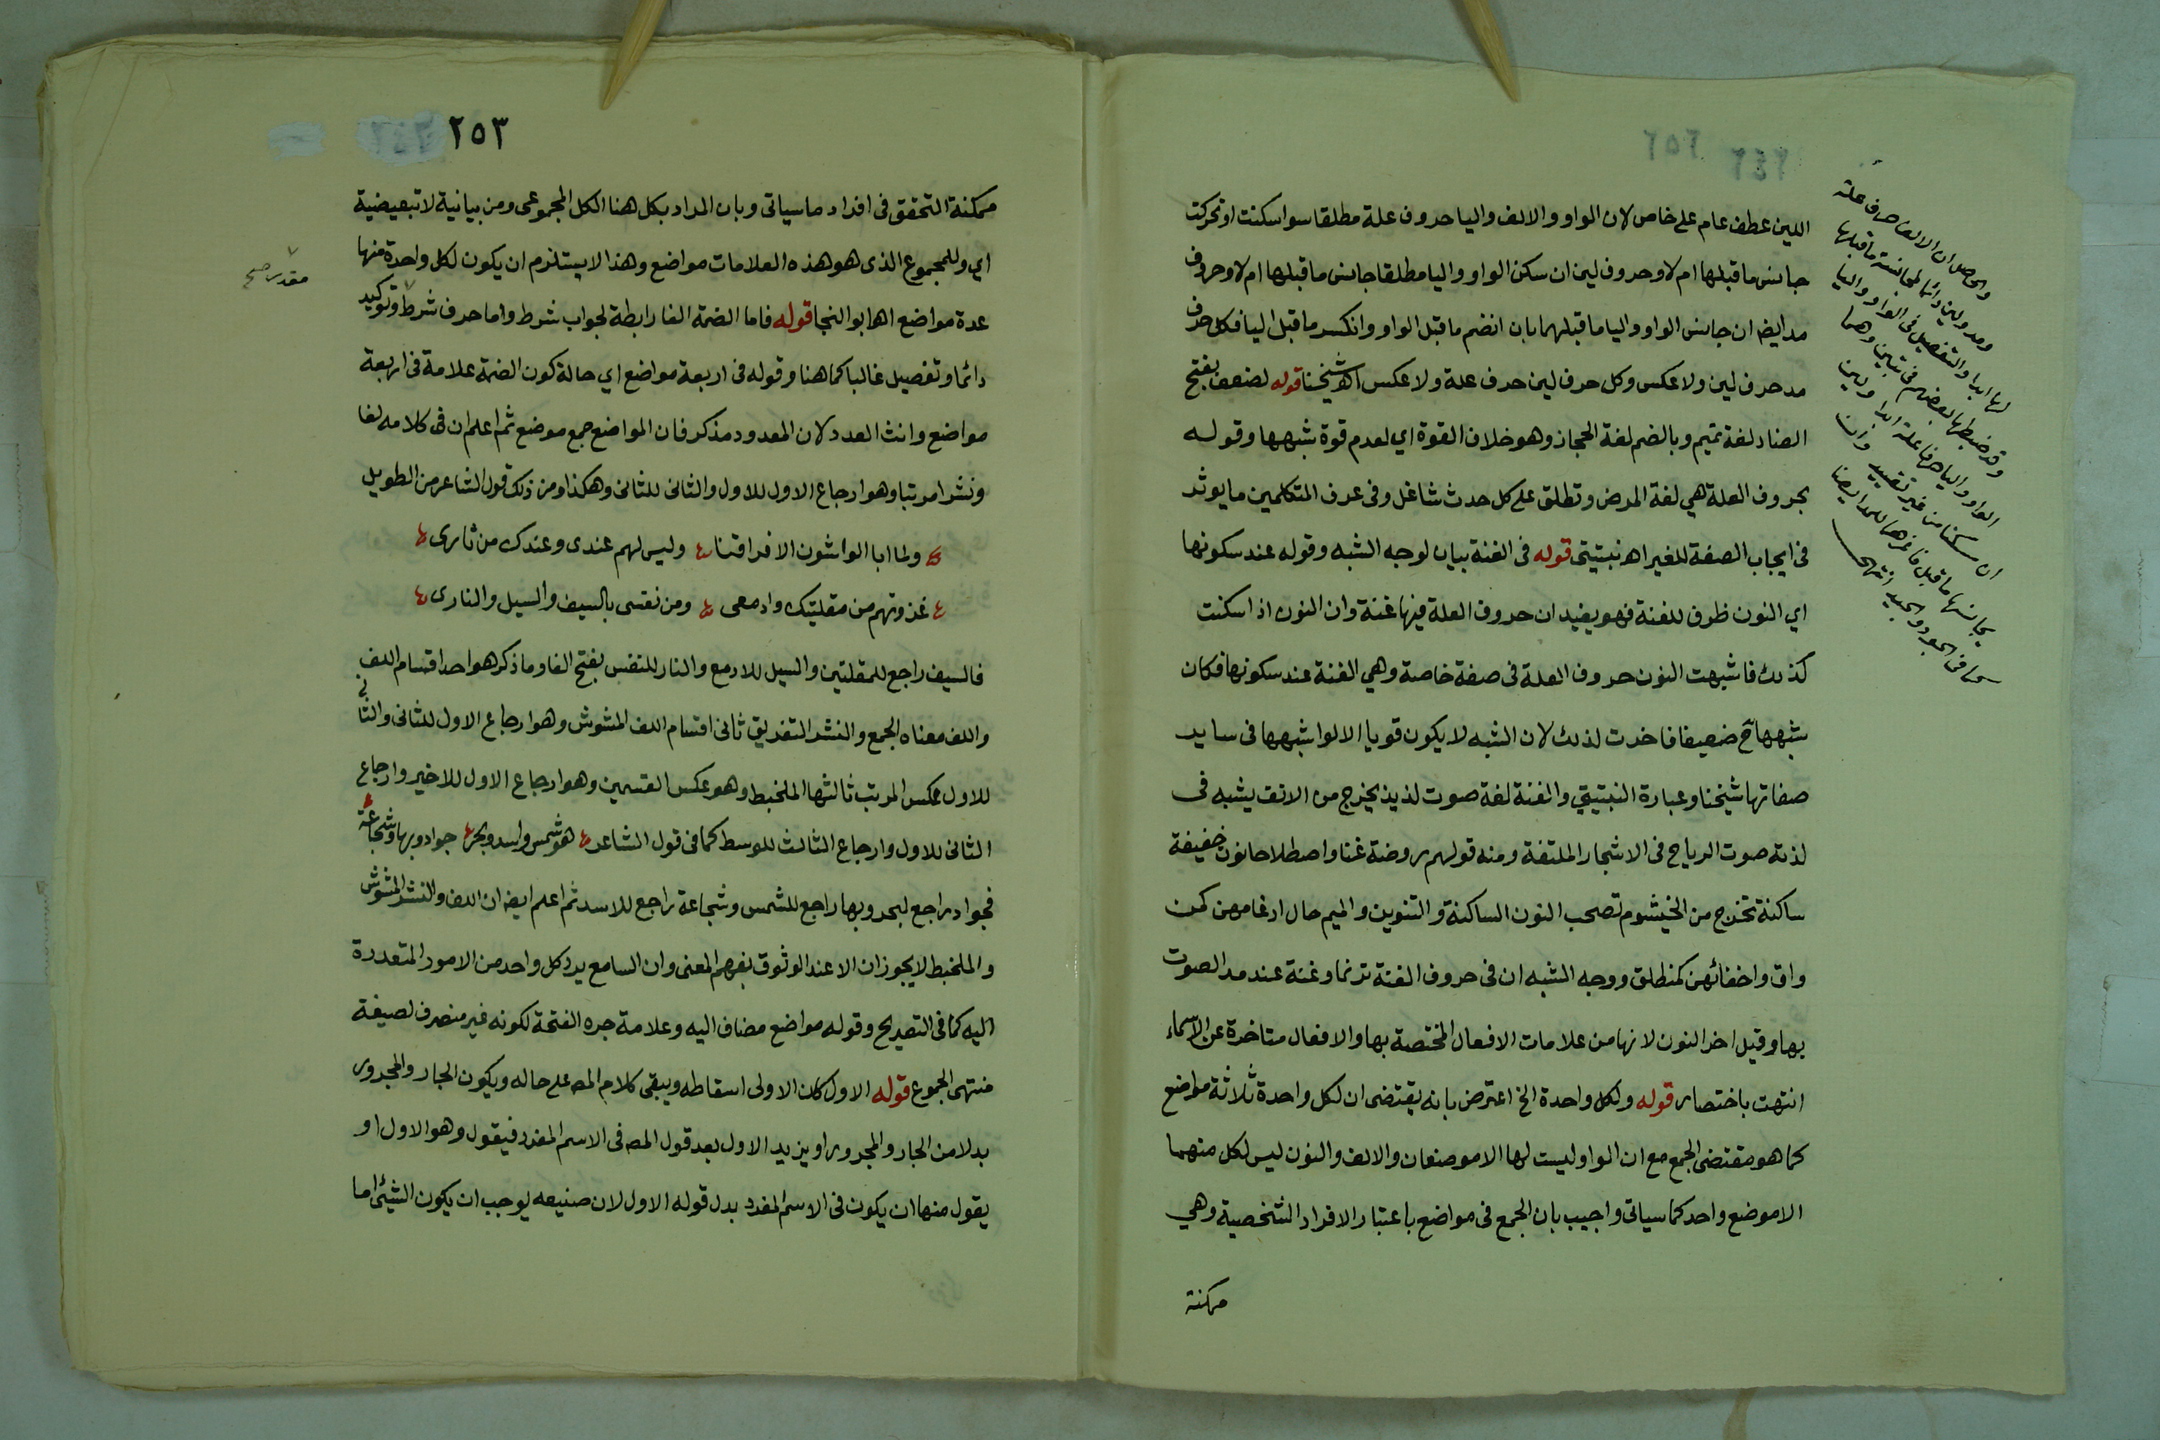 اللين عطف عام على خاص لان الواو والالف واليا حروف علة مطلقا سوا سكنت او تحركت
جانس ما قبلها ام لا وحروف لين ان سكن الواو واليا مطلقا جانس ما قبلها ام لا وحروف
مد ايضا ان جانس الواو واليا ما قبلهما بان انضم ما قبل الواو وانكسر ما قبل اليا فكل حرف
مد حرف لين ولا عكس وكل حرف لين حرف علة ولا عكس اهـ شيخنا قوله لضعف بفتح
الضاد لغة تميم وبالضم لغة الحجاز وهو خلاف القوة اي لعدم قوة شبهها وقوله
بحروف العلة هي لغة المرض وتطلق على كل حدث شاغل وفى عرف المتكلمين ما يوثر
فى ايجاب الصفة للغير اهـ نبتيتى قوله فى الغنة بيان لوجه الشبه وقوله عند سكونها
اي النون ظرف للغنة فهو يفيد ان حروف العلة فيها غنة وان النون اذا سكنت
كذلك فاشبهت النون حروف العلة فى صفة خاصة وهي الغنة عند سكونها فكان
شبهها ح ضعيفا فاخرت لذلك لان الشبه لا يكون قويا الا لو اشبهها فى ساير
صفاتها شيخنا وعبارة النبتيتي والغنة لغة صوت لذيذ يخرج من الانف يشبه فى
لذته صوت الرياح فى الاشجار الملتفة ومنه قولهم روضة غنا واصطلاحا نون خفيفة
ساكنة تخرج من الخيشوم تصحب النون الساكنة والتنوين والميم حال ادغامهن كمن
واق واخفائهن كمنطلق ووجه الشبه ان فى حروف الغنة ترنما وغنة عند مد الصوت
بها وقيل اخر النون لانها من علامات الافعال المختصة بها والافعال متاخرة عن الاسماء
انتهت باختصار قوله ولكل واحدة الخ اعترض بانه يقتضى ان لكل واحدة ثلاثة مواضع
كما هو مقتضى الجمع مع ان الواو ليست لها الا موضعان والالف والنون ليس لكل منهما
الا موضع واحد كما سياتى واجيب بان الجمع فى مواضع باعتبار الافراد الشخصية وهي
ممكنة
والحاصل ان الالف حرف علة
ومد ولين دائما لمجانسة ما قبلها
لها ابدا والتفصيل فى الواو واليا
الواو واليا حرفا علة ابدا ولين
ان سكنا من غير تقييد وان
٢٥٣
ممكنة التحقق فى افراد ما سياتى وبان المراد بكل هنا الكل المجموعى ومن بيانية لا تبعيضية
اي وللمجموع الذى هو هذه العلامات مواضع وهذا لا يستلزم ان يكون لكل واحدة منها
عدة مواضع اهـ ابو النجا قوله فاما الضمة الفا رابطة لجواب شرط واما حرف شرط وتوكيد
دائما وتفصيل غالبا كما هنا وقوله فى اربعة مواضع اي حالة كون الضمة علامة فى اربعة
مواضع وانث العدد لان المعدود مذكر فان المواضع جمع موضع ثم اعلم ان فى كلامه لفا
ونشرا مرتبا وهو ارجاع الاول للاول والثانى للثانى وهكذا ومن ذلك قول الشاعر من الطويل
ولما ابا الواشون الا فراقنا وليس لهم عندى وعندك من ثارى
غزوتهم من مقلتيك وادمعى ومن نفسى بالسيف والسيل والنارى
فالسيف راجع للمقلتين والسيل للادمع والنار للنفس بفتح الفا وما ذكر هو احد اقسام اللف
واللف معناه الجمع والنشر التفريق ثانى اقسام اللف المشوش وهو ارجاع الاول للثانى والثانى
للاول عكس المرتب ثالثها الملخبط وهو عكس القسمين وهو ارجاع الاول للاخير وارجاع
الثانى للاول وارجاع الثالث للوسط كما فى قول الشاعر هو شمس واسد وبحر جواد وبها وشجاعة
فجواد راجع لبحر وبها راجع للشمس وشجاعة راجع للاسد ثم اعلم ايضا ان اللف والنشر المشوش
والملخبط لا يجوزان الا عند الوثوق بفهم المعنى وان السامع يرد كل واحد من الامور المتعددة
اليه كما فى التصريح وقوله مواضع مضاف اليه وعلامة جره الفتحة لكونه غير منصرف لصيغة
منتهى الجموع قوله الاول كان الاولى اسقاطه ويبقى كلام المصـ على حاله ويكون الجار والمجرور
بدلا من الجار والمجرور او يزيد الاول بعد قول المصـ فى الاسم المفرد فيقول وهو الاول او
يقول منها ان يكون فى الاسم المفرد بدل قوله الاول لان صنيعه يوجب ان يكون الشيئى اما